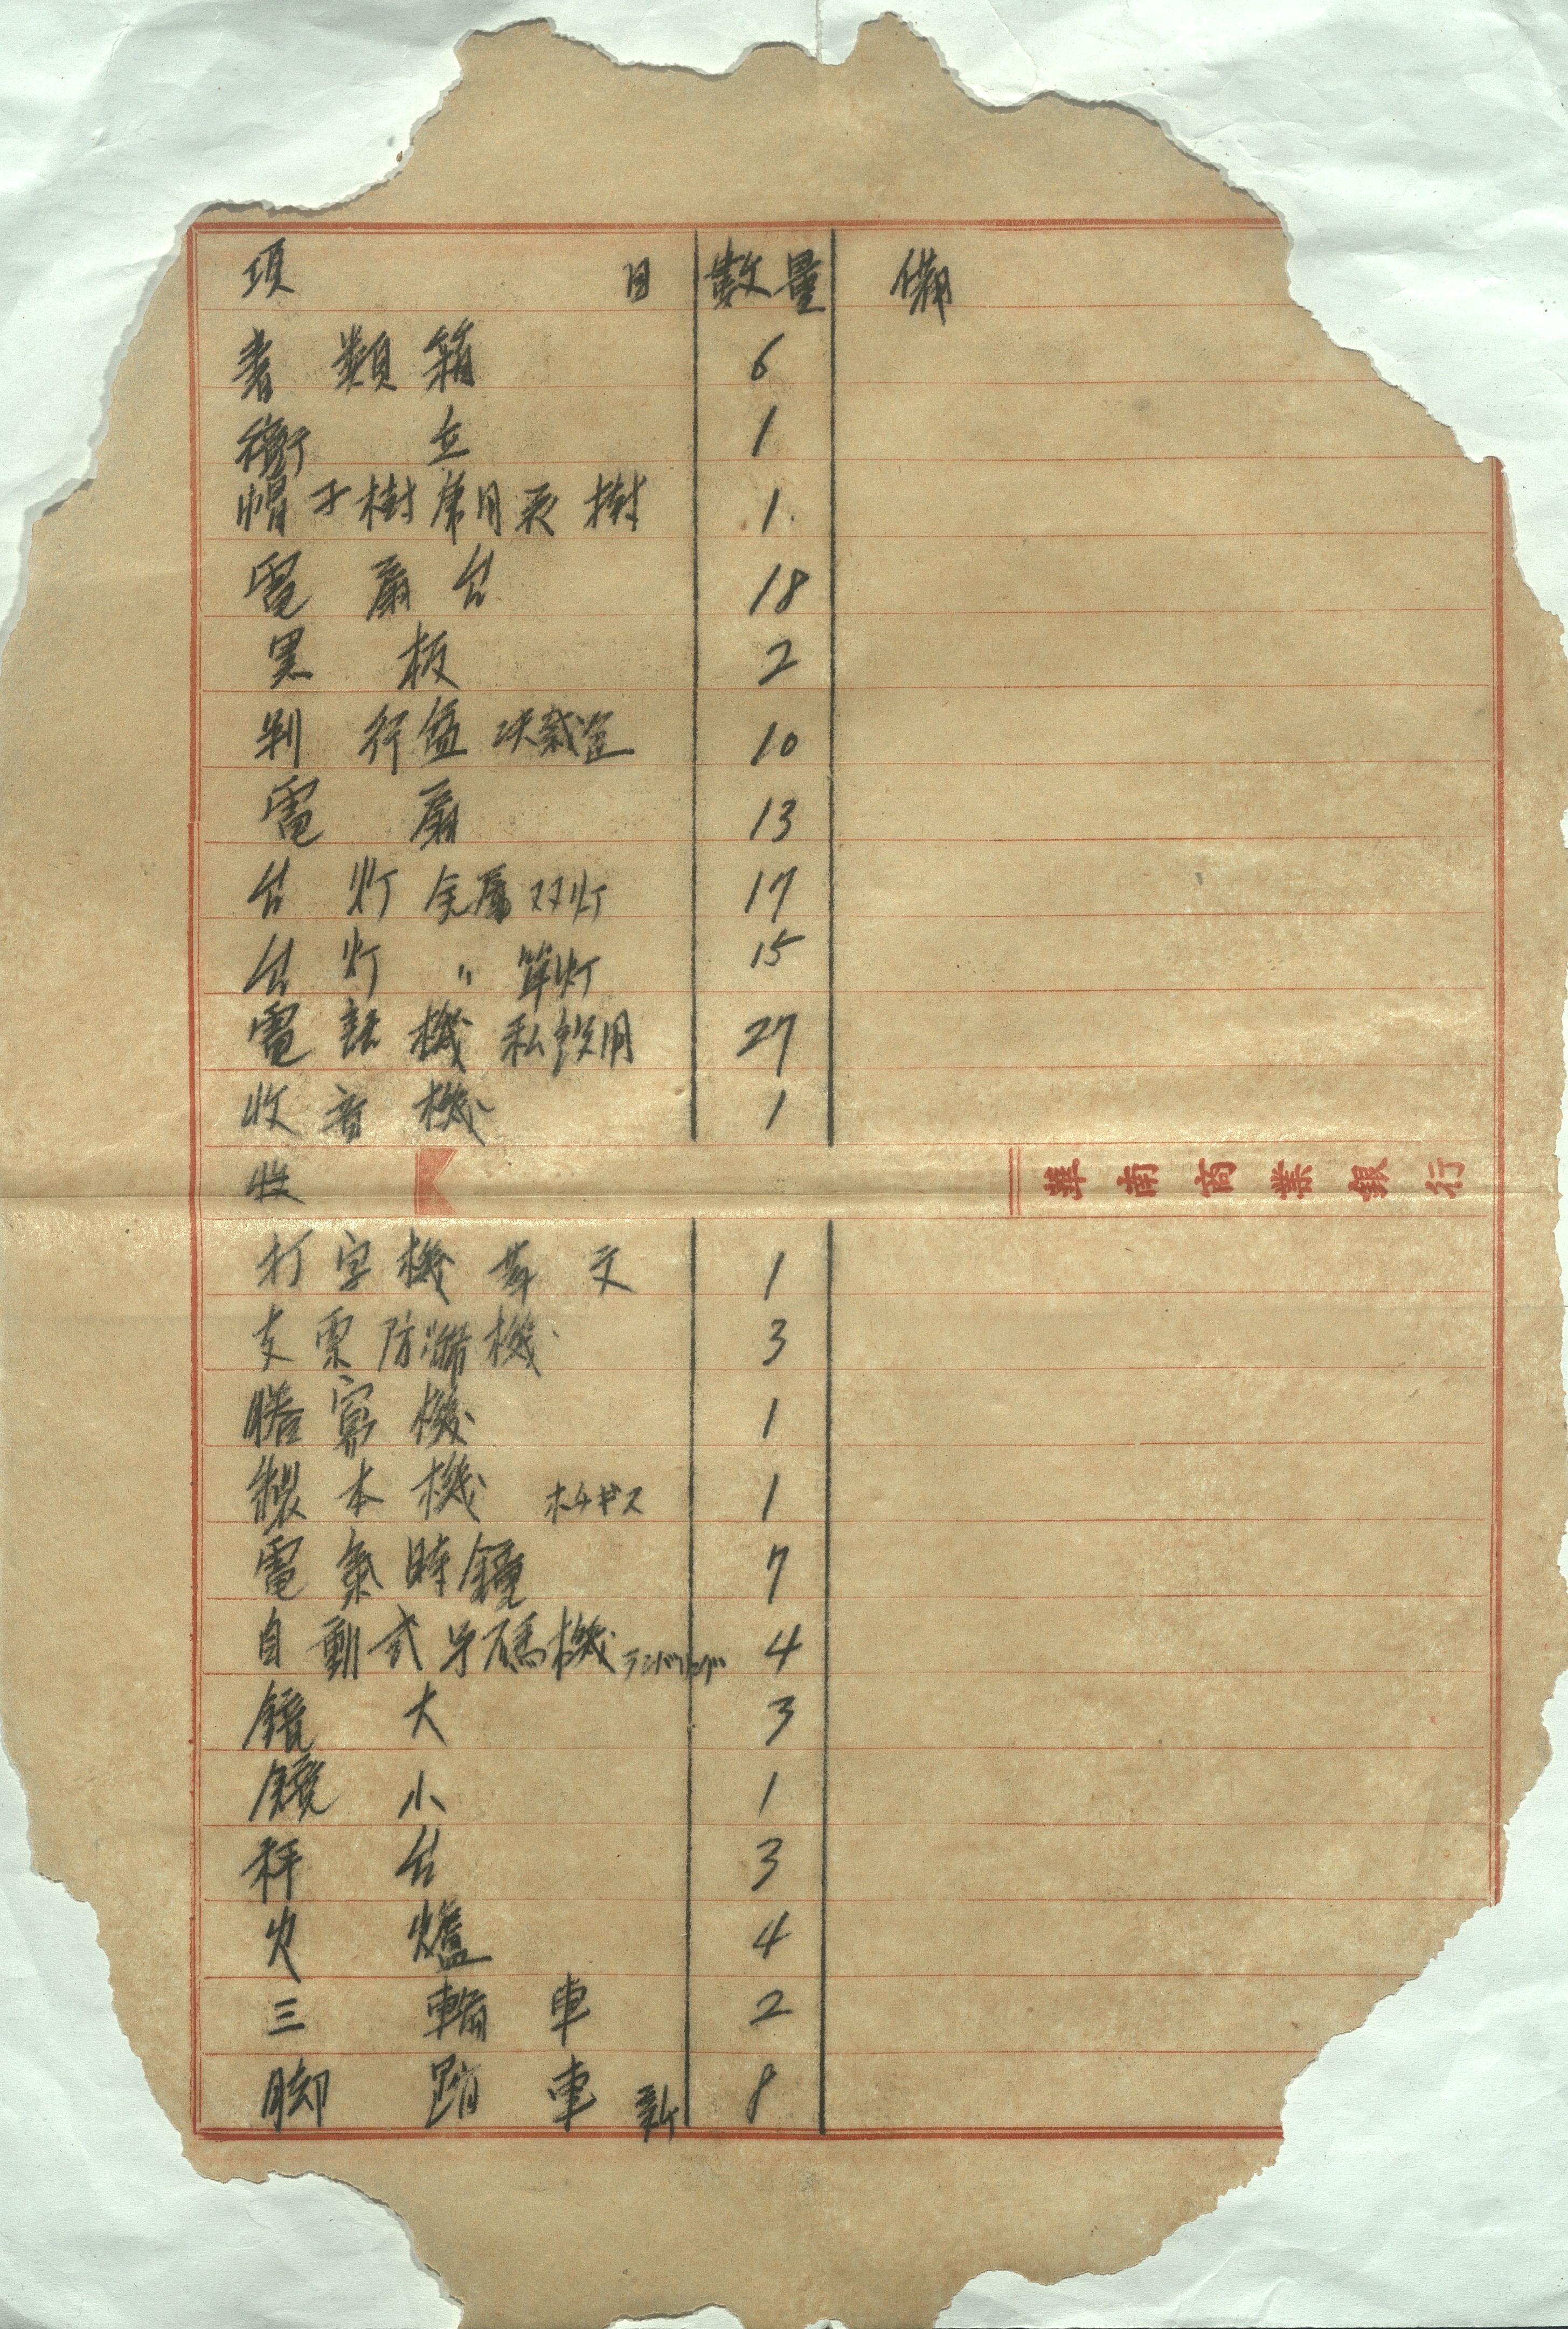 項 目 數量 備
書類箱 6
衝立 1
帽子樹 兼用衣樹 1
電扇台 18
黑板 2
判行盒 決裁盒 10
電扇 13
台灯 金属双灯 17
台灯 〃 単灯 15
電話機 私設用 27
收音機 1
收
華南商業銀行
打字機 華文 1
支票防滲機 3
謄寫機 1
製本機 ホチキス 1
電氣時鐘 7
自動式号碼機 4
鏡 大 3
鏡 小 1
秤台 3
火爐 4
三輪車 2
脚踏車 新 8